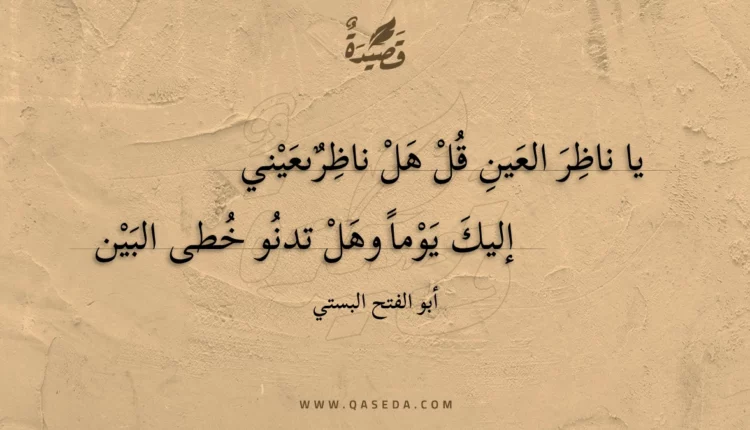 قَصِيدَةٌ
يا ناظِرَ العَينِ قُلْ هَلْ ناظِرٌ بعَيْني
إليكَ يَوْماً وهَلْ تدنُو خُطى البَيْن
أبو الفتح البستي
WWW.QASEDA.COM